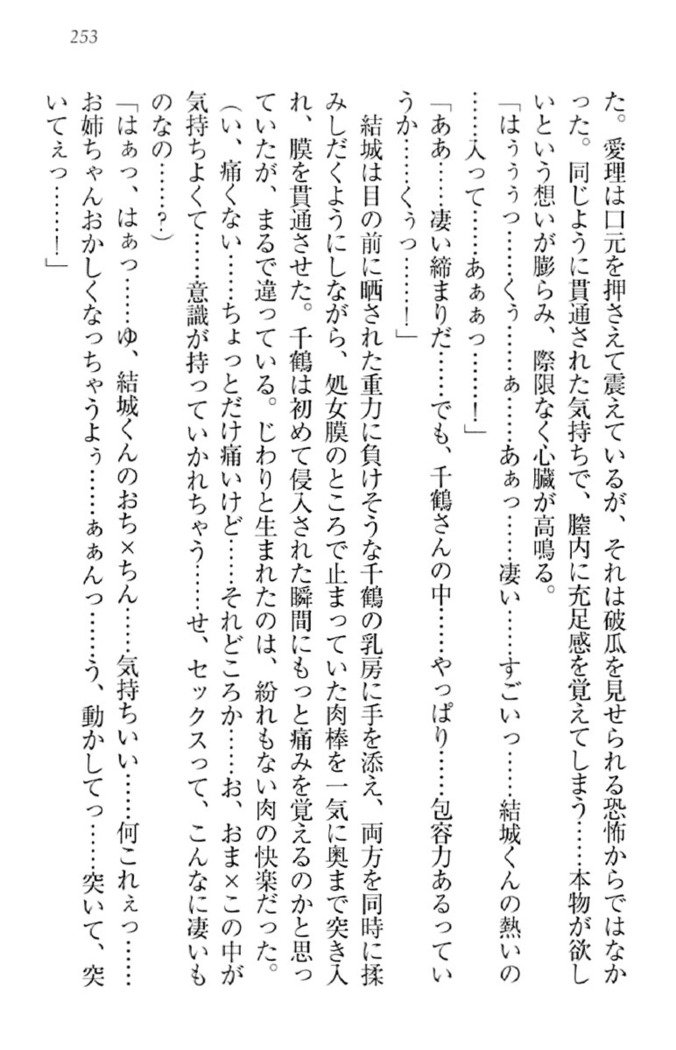 253
た。愛理は口元を押さえて震えているが、それは破瓜を見せられる恐怖からではなか
った。同じように貫通された気持ちで、膣内に充足感を覚えてしまう……本物が欲し
いという想いが膨らみ、際限なく心臓が高鳴る。
「はぅぅぅっ……くぅ……ぁ……あぁっ……凄い……すごいっ……結城くんの熱いの
……入って……あぁぁっ……！」
「ああ……凄い締まりだ……でも、千鶴さんの中……やっぱり……包容力あるってい
うか……くぅっ……！」
結城は目の前に晒された重力に負けそうな千鶴の乳房に手を添え、両方を同時に揉
みしだくようにしながら、処女膜のところで止まっていた肉棒を一気に奥まで突き入
れ、膜を貫通させた。千鶴は初めて侵入された瞬間にもっと痛みを覚えるのかと思っ
ていたが、まるで違っている。じわりと生まれたのは、紛れもない肉の快楽だった。
（い、痛くない……ちょっとだけ痛いけど……それどころか……お、おま×この中が
気持ちよくて……意識が持っていかれちゃう……せ、セックスって、こんなに凄いも
のなの……？）
「はぁっ、はぁっ……ゆ、結城くんのおち×ちん……気持ちいい……何これぇっ……
お姉ちゃんおかしくなっちゃうよぅ……ぁぁんっ……う、動かしてっ……突いて、突
いてぇっ……！」